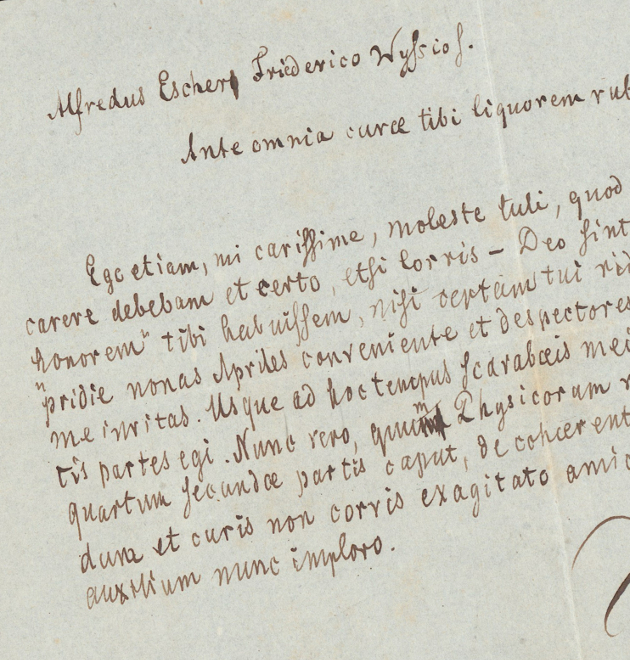 Alfredus Escher Friderico Wyssio S.
Ante omnia curæ tibi liquorem rub
Ego etiam, mi carissime, moleste tuli, quod
carere debebam et certo, etsi corris – Deo sint
honorem" tibi habuissem, nisi certam tui rid
"pridie nonas Apriles conveniente et despectores
me invitas. Usque ad hoc tempus scarabæis mei
tis partes egi. Nunc vero, quum Physicorum
quartum secundæ partis caput, de cohærent
dum et curis non corris exagitato amic
auxilium nunc imploro.